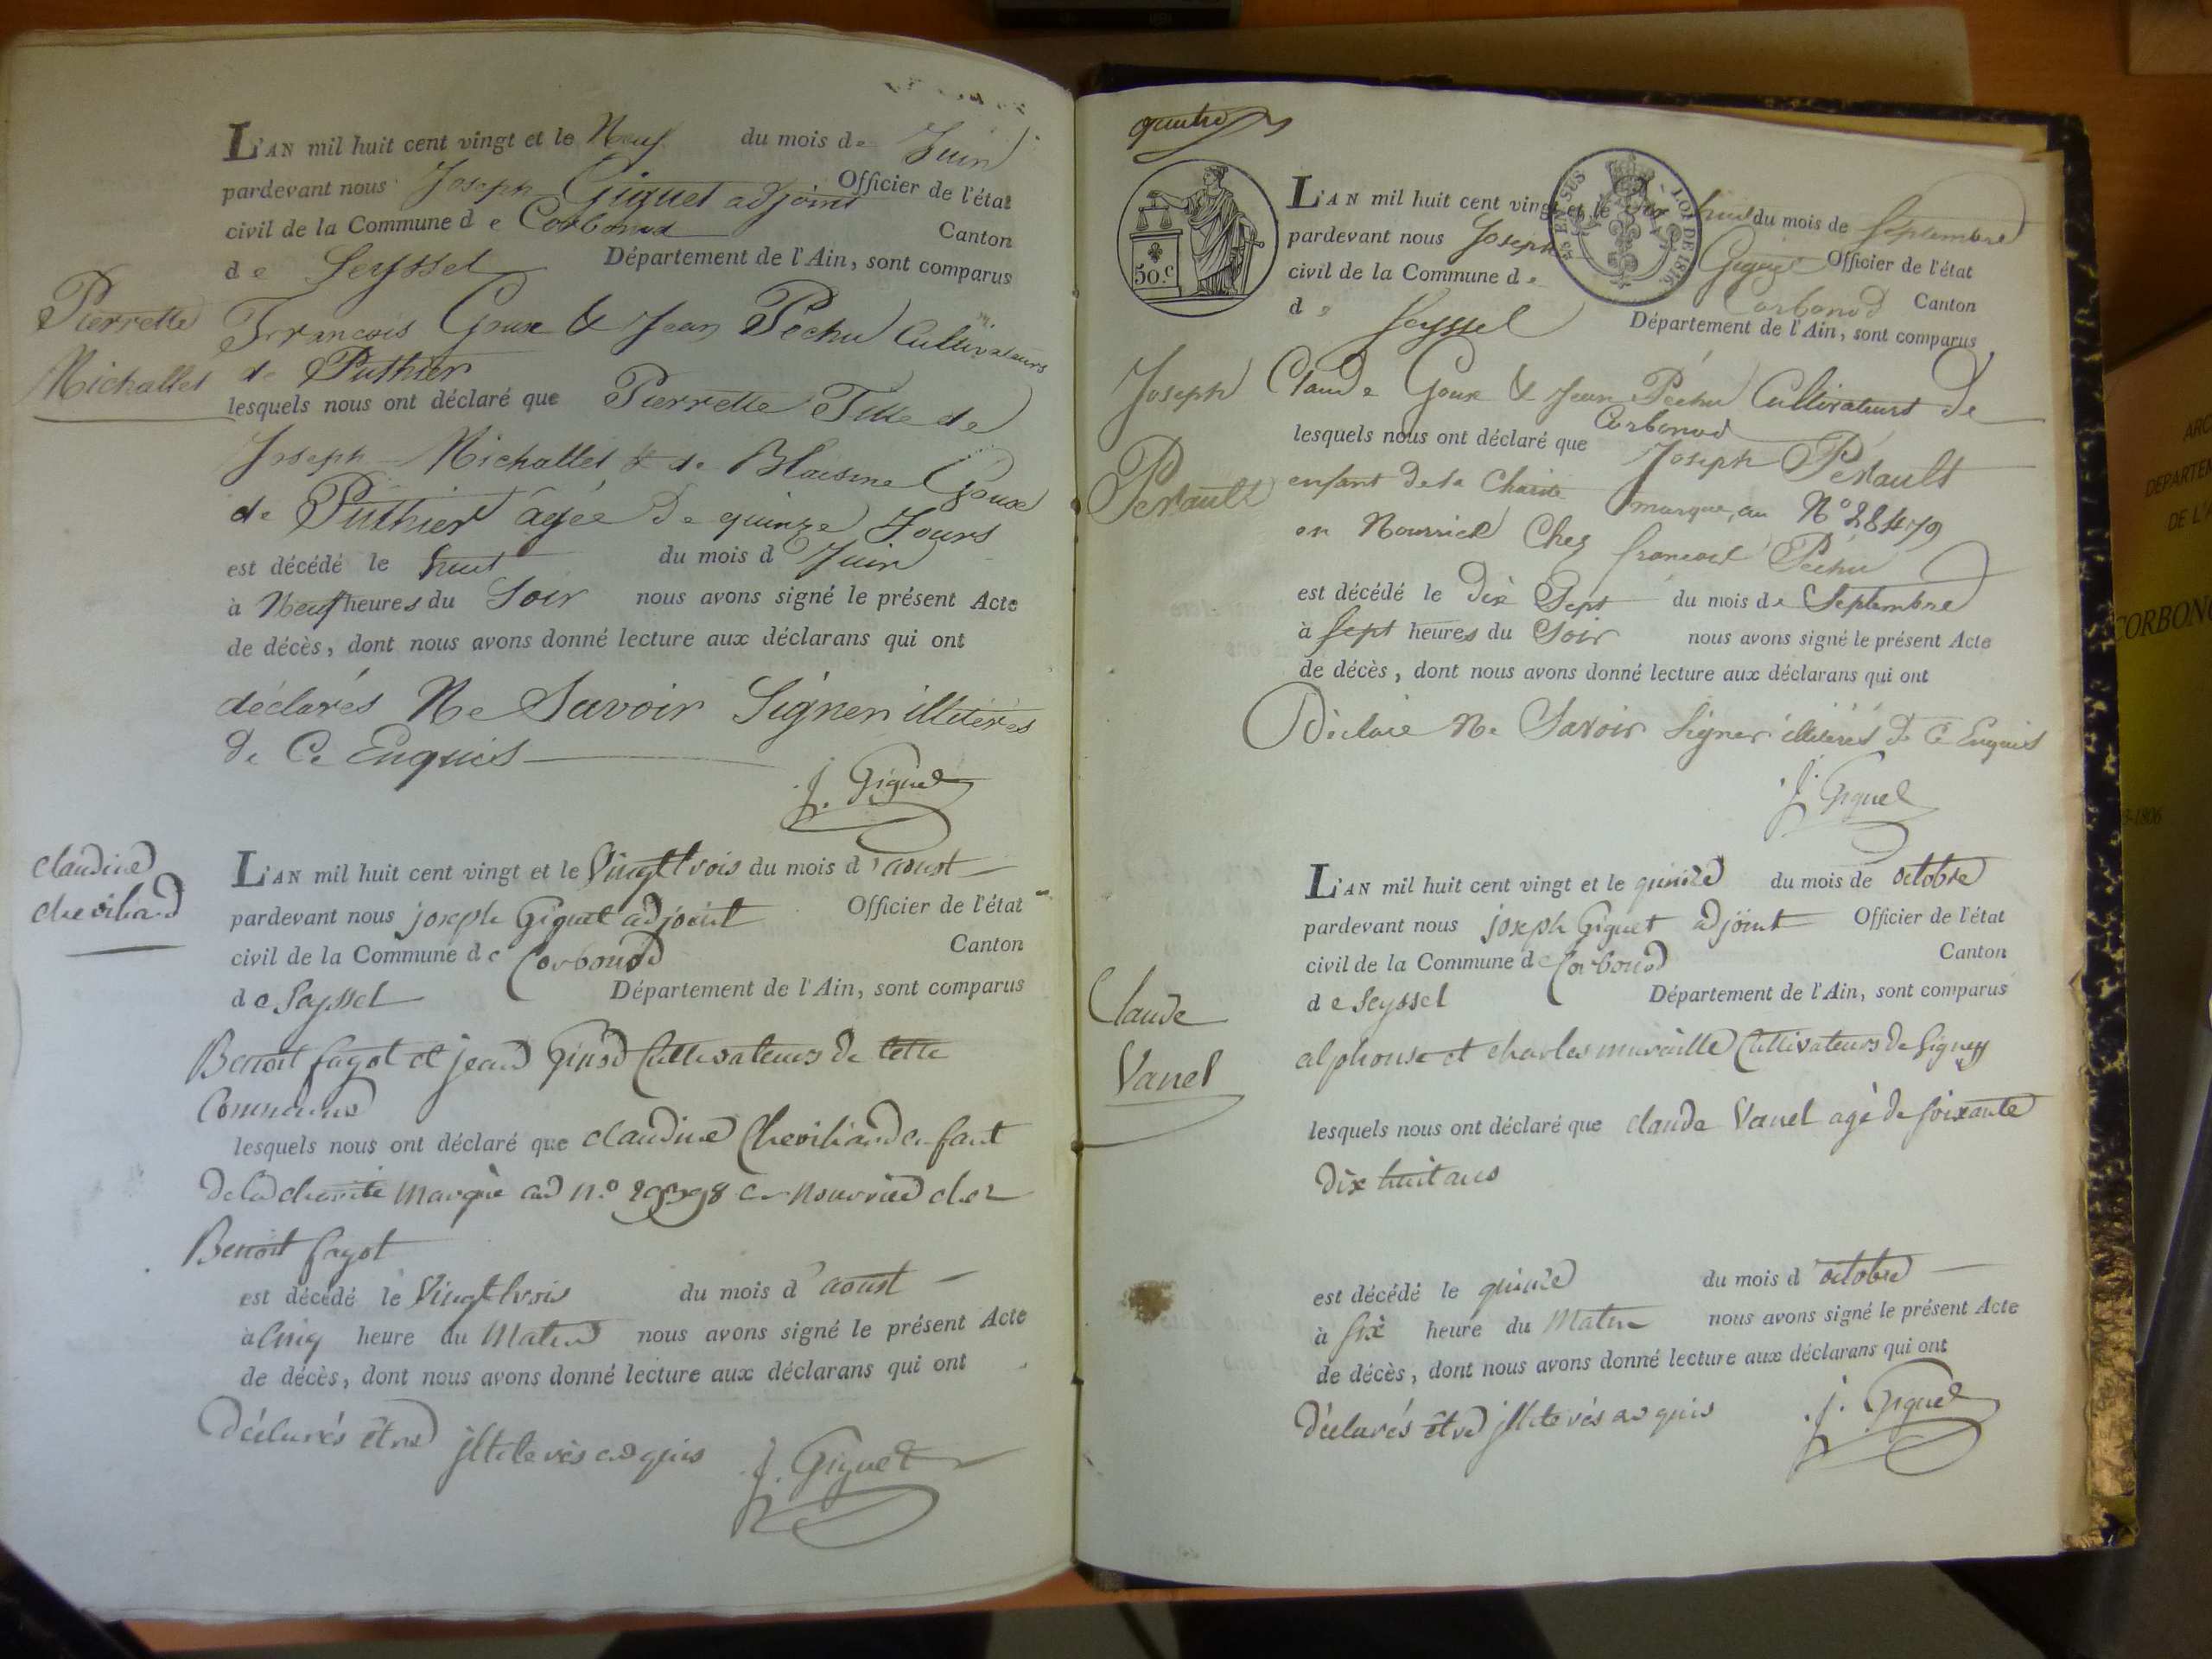 L'AN mil huit cent vingt et le Neuf du mois de Juin
pardevant nous Joseph Giguet adjoint Officier de l'état
civil de la Commune d e Corbonod Canton
d e Seyssel Département de l'Ain, sont comparus
Pierrette
Michallet
Francois Goux & Jean Pechu Cultivateurs
de Puthier
lesquels nous ont déclaré que Pierrette Fille de
Joseph Michallet & de Blaisine Goux
de Puthier agée De quinze Jours
est décédé le huit du mois d Juin
à Neuf heures du Soir nous avons signé le présent Acte
de décès, dont nous avons donné lecture aux déclarans qui ont
déclarés Ne Savoir Signer illitérés
De Ce Enquis
J. Giguet
claudine
cheviliand
L'AN mil huit cent vingt et le Vingt trois du mois d'aoust
pardevant nous joseph Giguet adjoint Officier de l'état
civil de la Commune de Corbonod Canton
d e Seyssel Département de l'Ain, sont comparus
Benoit fagot et jean Ginod Cultivateurs de cette
Commune
lesquels nous ont déclaré que claudine Cheviliand enfant
De la charité marqué au n.º en nourrice chez
Benoit fagot
est décédé le Vingt trois du mois d'aoust
à Cinq heure du Matin nous avons signé le présent Acte
de décès, dont nous avons donné lecture aux déclarans qui ont
Déclarés être jlliterés enquis J. Giguet
quatre
50.c
EN SUS LOI DE 1816
L'AN mil huit cent vingt et le Dix huit du mois de Septembre
pardevant nous Joseph Giguet Officier de l'état
civil de la Commune de Corbonod Canton
d e Seyssel Département de l'Ain, sont comparus
Joseph
Perault
Claude Goux & Jean Péchu Cultivateurs de
Corbonod
lesquels nous ont déclaré que Joseph Pérault
enfant de la Charité marque, au Nº 28479
en Nourrice Chez francois Péchu
est décédé le Dix Sept du mois de Septembre
à Sept heures du Soir nous avons signé le présent Acte
de décès, dont nous avons donné lecture aux déclarans qui ont
Déclaré Ne Savoir Signer illiterés De Ce Enquis
J. Giguet
L'AN mil huit cent vingt et le quinze du mois de octobre
pardevant nous joseph Giguet adjoint Officier de l'état
civil de la Commune de Corbonod Canton
d e Seyssel Département de l'Ain, sont comparus
Claude
Vanel
alphonse et charles muraille Cultivateurs de Gigney
lesquels nous ont déclaré que claude Vanel agé de soixante
Dix huit ans
est décédé le quinze du mois d'octobre
à six heure du Matin nous avons signé le présent Acte
de décès, dont nous avons donné lecture aux déclarans qui ont
Déclarés être jlliterés enquis J. Giguet